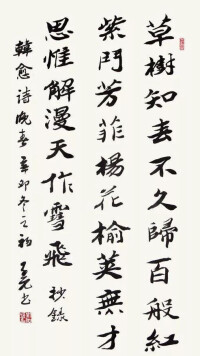 草樹知春不久歸百般紅
紫鬥芳菲楊花榆莢無才
思惟解漫天作雪飛 抄錄
韓愈詩晚春 辛卯冬之初